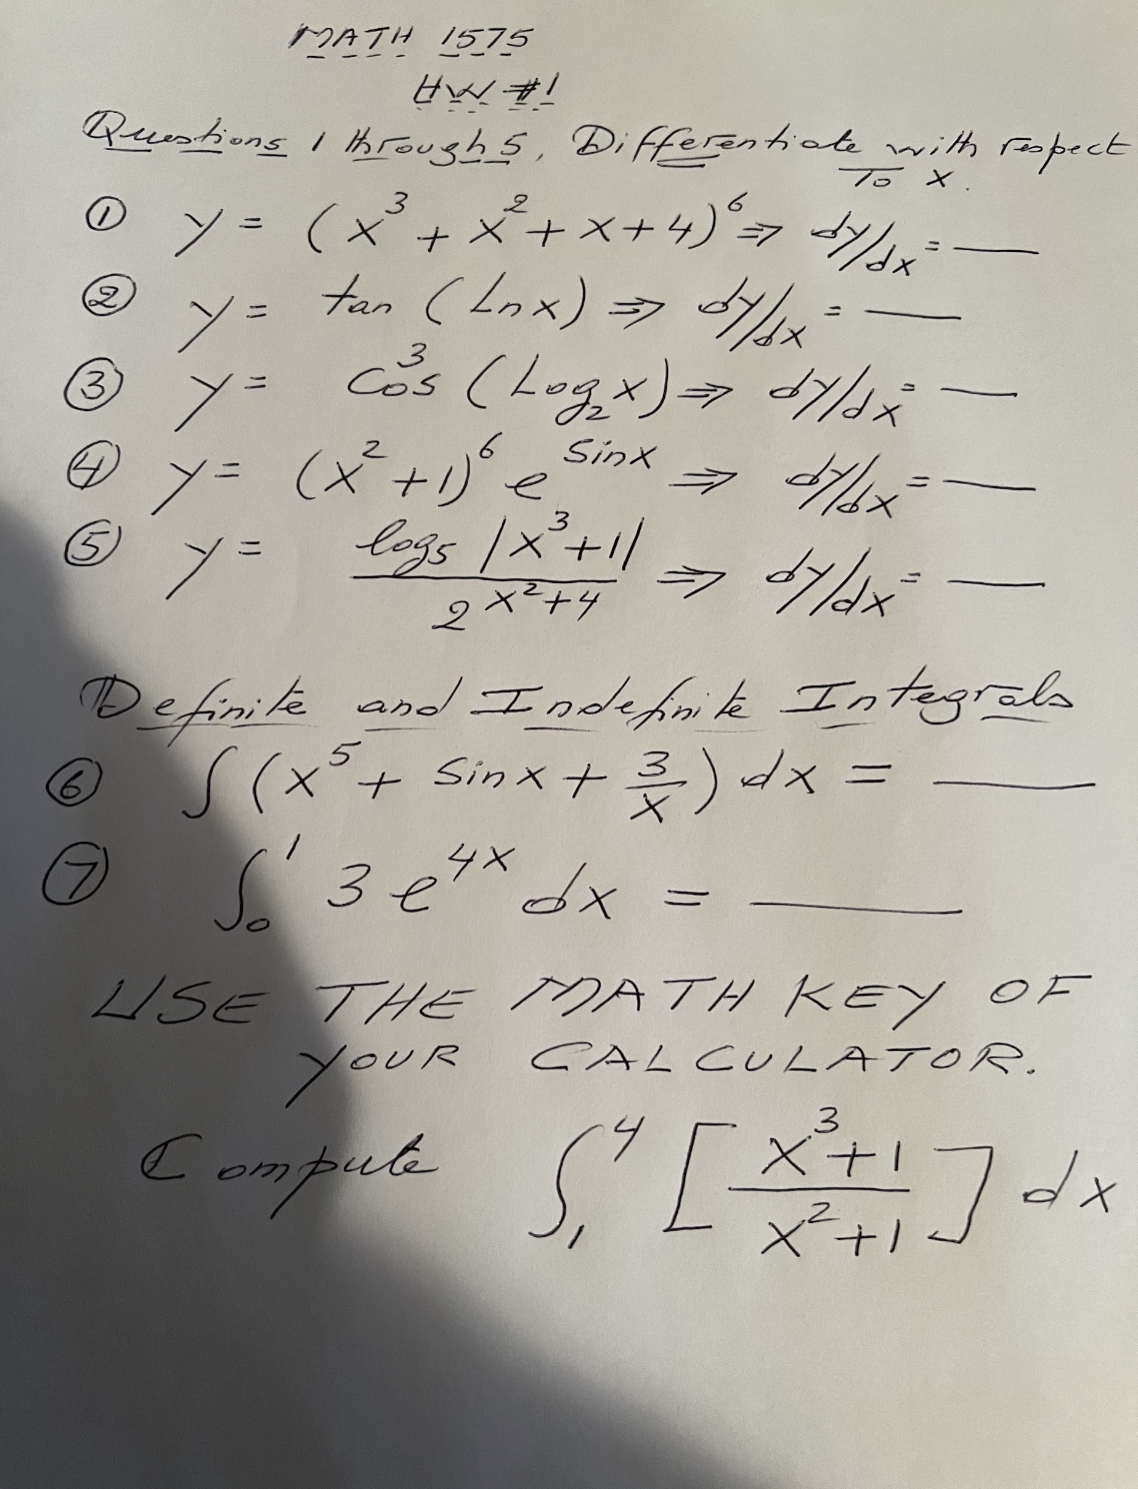 MATH 1575
HW #1
Questions 1 through 5, Differentiate with respect
To x.
① y = (x³ + x² + x + 4)⁶ ⇒ dy/dx = ___
② y = tan (Ln x) ⇒ dy/dx = ___
③ y = Cos³ (Log₂ x) ⇒ dy/dx = ___
④ y = (x² + 1)⁶ e^(Sin x) ⇒ dy/dx = ___
⑤ y = (log₅ |x³ + 1|) / (2^(x² + 4)) ⇒ dy/dx = ___
Definite and Indefinite Integrals
⑥ ∫ (x⁵ + Sin x + 3/x) dx = ___
⑦ ∫₀¹ 3 e^(4x) dx = ___
USE THE MATH KEY OF
YOUR CALCULATOR.
Compute ∫₁⁴ [(x³ + 1)/(x² + 1)] dx